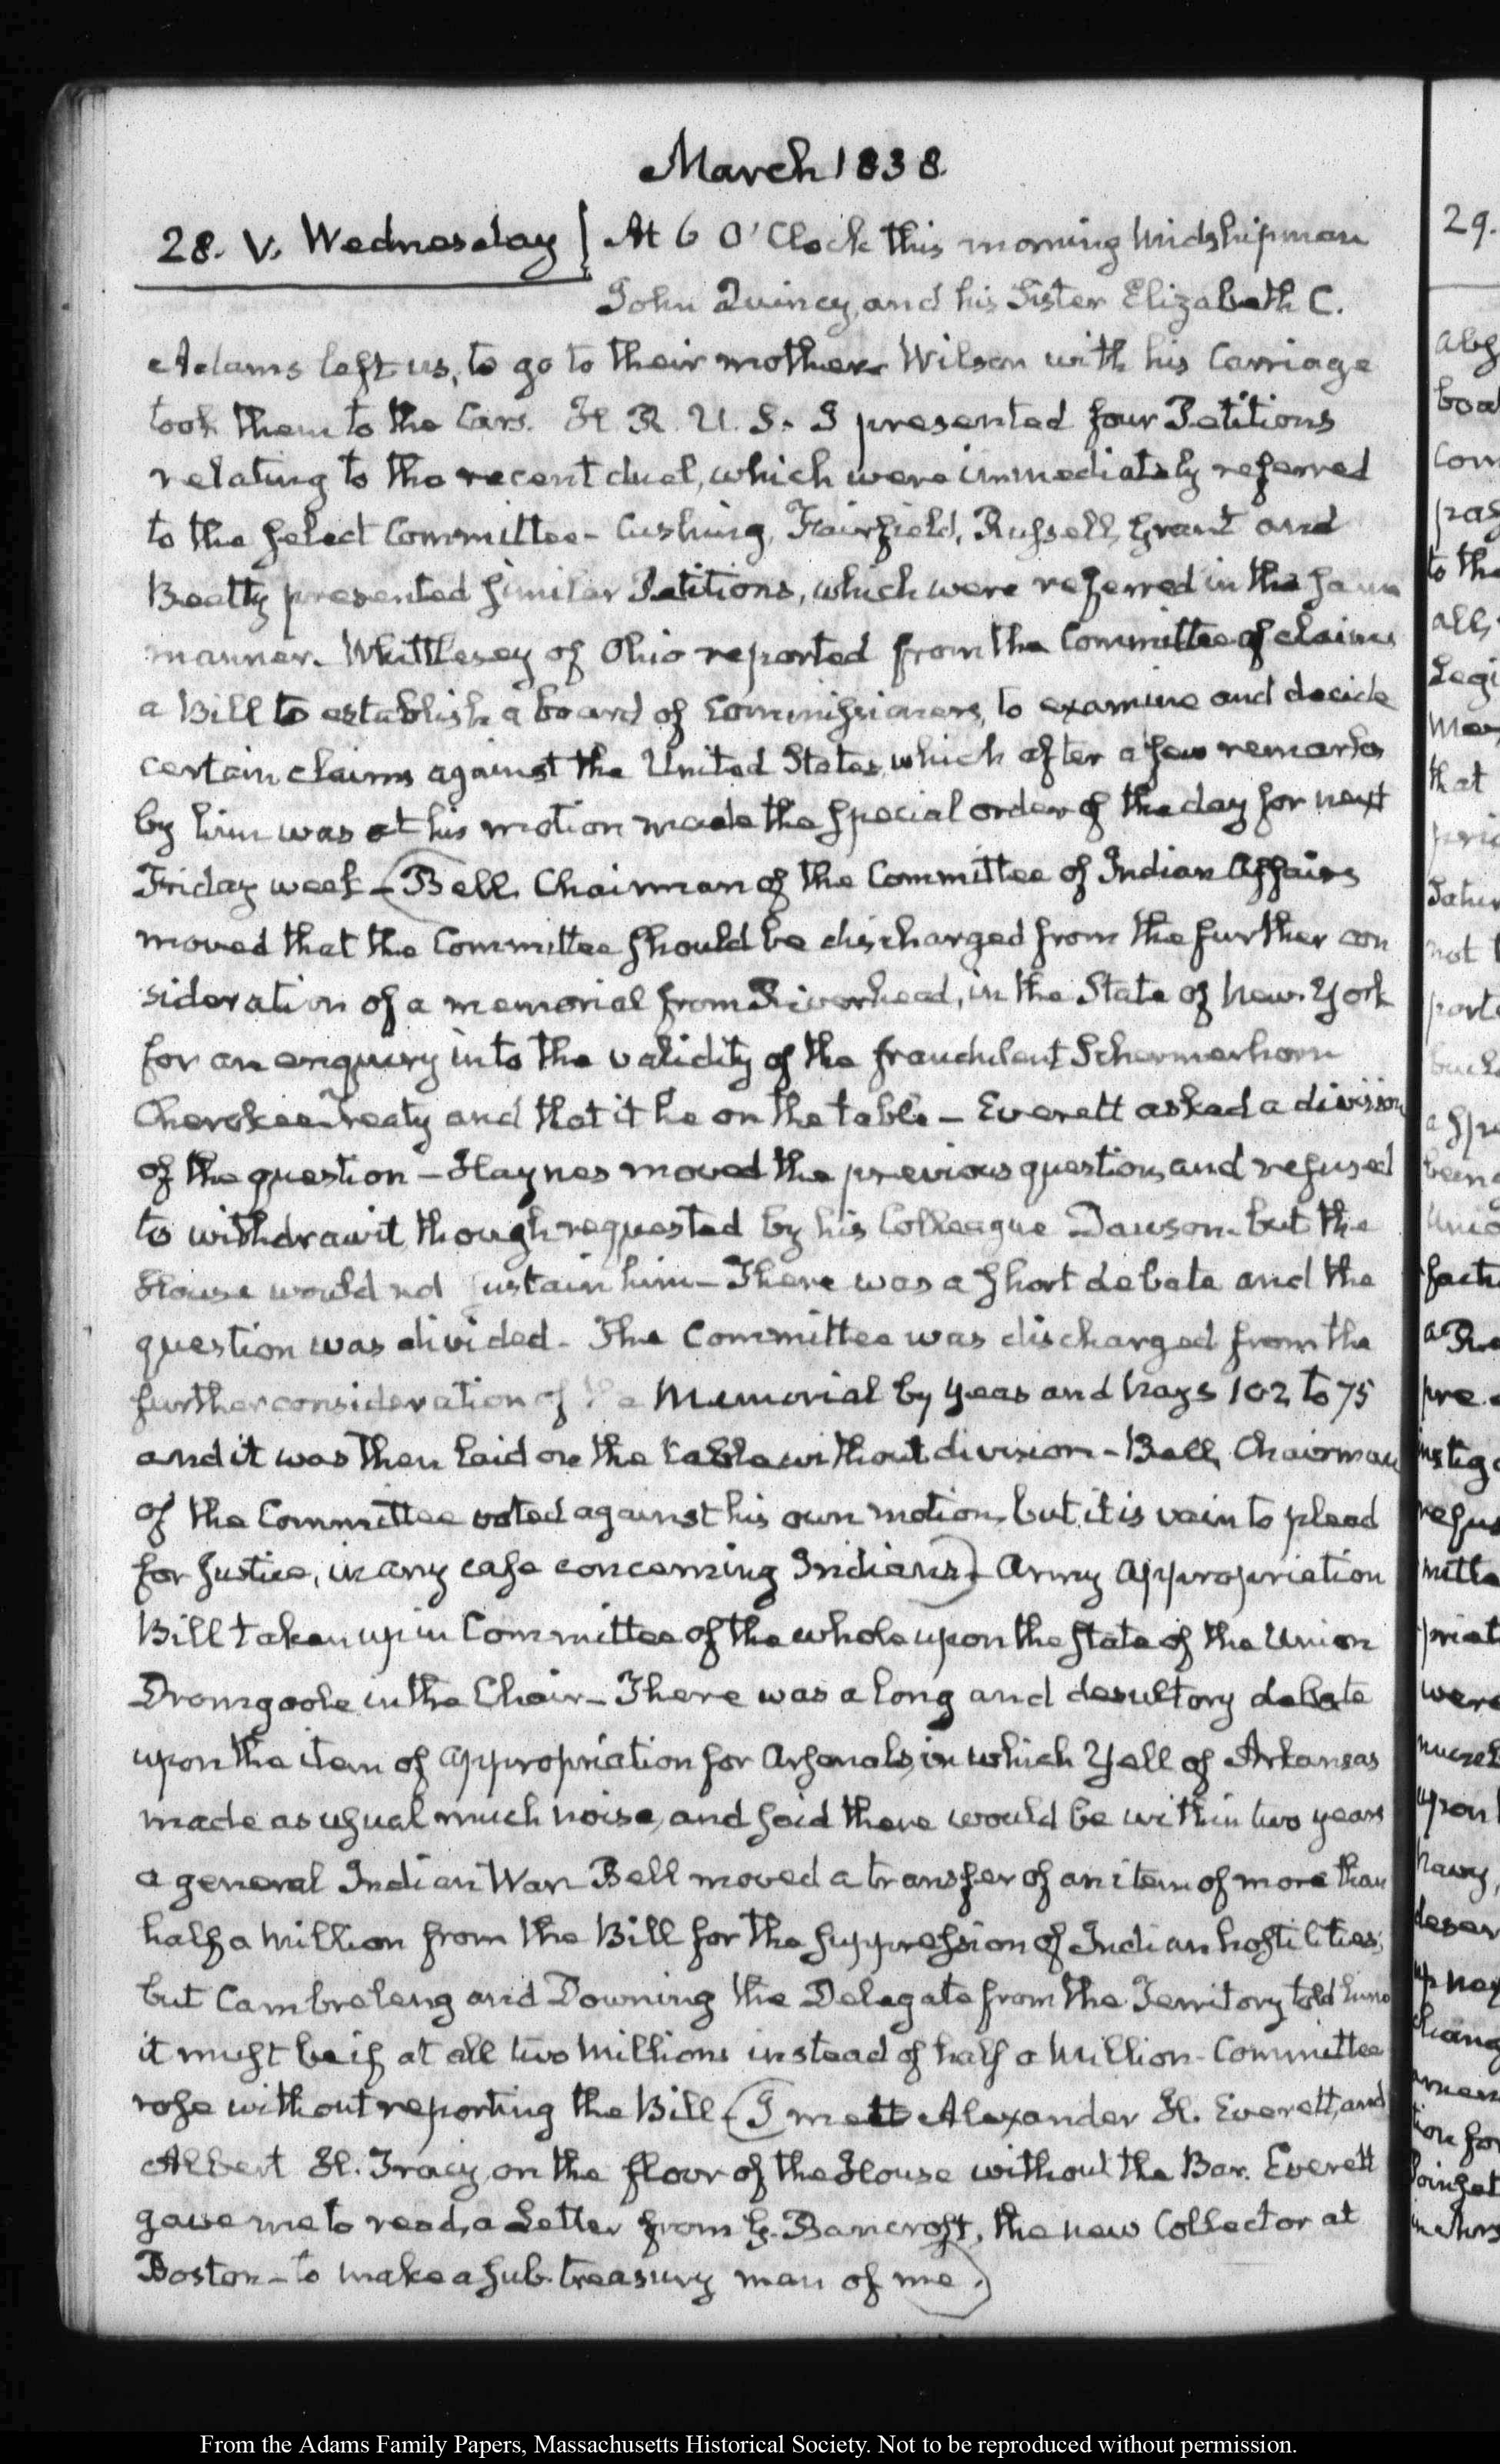 March 1838.
28. V. Wednesday At 6 O'Clock this morning Midshipman
John Quincy, and his Sister Elizabeth C.
Adams left us, to go to their mother. Wilson with his Carriage
took them to the Cars. H. R. U. S. I presented four Petitions
relating to the recent duel, which were immediately referred
to the select Committee - Cushing, Fairfield, Russell, Grant and
Beatty presented similar Petitions, which were referred in the same
manner. Whittlesey of Ohio reported from the Committee of claims
a Bill to establish a board of Commissioners, to examine and decide
certain claims against the United States, which after a few remarks
by him was at his motion made the special order of the day for next
Friday week - (Bell, Chairman of the Committee of Indian Affairs
moved that the Committee should be discharged from the further con
sideration of a memorial from Riverhead, in the State of New-York
for an enquiry into the validity of the fraudulent Schermerhorn
Cherokee Treaty and that it lie on the table - Everett asked a division
of the question - Haynes moved the previous question, and refused
to withdraw it though requested by his Colleague Dawson. but the
House would not sustain him - There was a short debate and the
question was divided - The Committee was discharged from the
further consideration of the Memorial by Yeas and Nays 102 to 75
and it was then laid on the table without division - Bell, Chairman
of the Committee voted against his own motion, but it is vain to plead
for Justice, in any case concerning Indians) - Army Appropriation
Bill taken up in Committee of the whole upon the State of the Union
Dromgoole in the Chair - There was a long and desultory debate
upon the item of appropriation for Arsenals, in which Yell of Arkansas
made as usual much noise, and said there would be within two years
a general Indian War - Bell moved a transfer of an item of more than
half a Million from the Bill for the suppression of Indian hostilities;
but Cambreleng and Downing the Delegate from the Territory told him
it must be if at all two Millions instead of half a Million - Committee
rose without reporting the Bill - (I mett Alexander H. Everett, and
Albert H. Tracy, on the floor of the House without the Bar. Everett
gave me to read, a Letter from G. Bancroft, the new Collector at
Boston - to make a sub-treasury man of me.)
29.
boa
to the
that
not
From the Adams Family Papers, Massachusetts Historical Society. Not to be reproduced without permission.